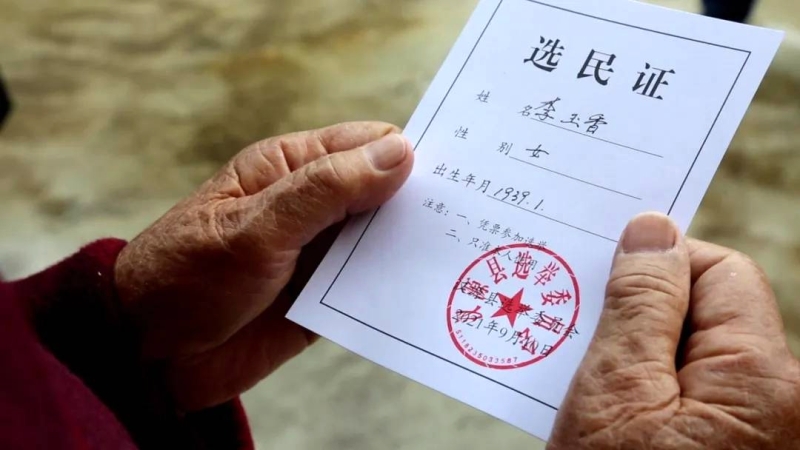 选民证
姓 名 李玉香
性 别 女
出生年月 1939.1.
注意：一、凭票参加选举
二、只准本人
县选举委员会
2021年9月 日
县选举委员会
5118235053587